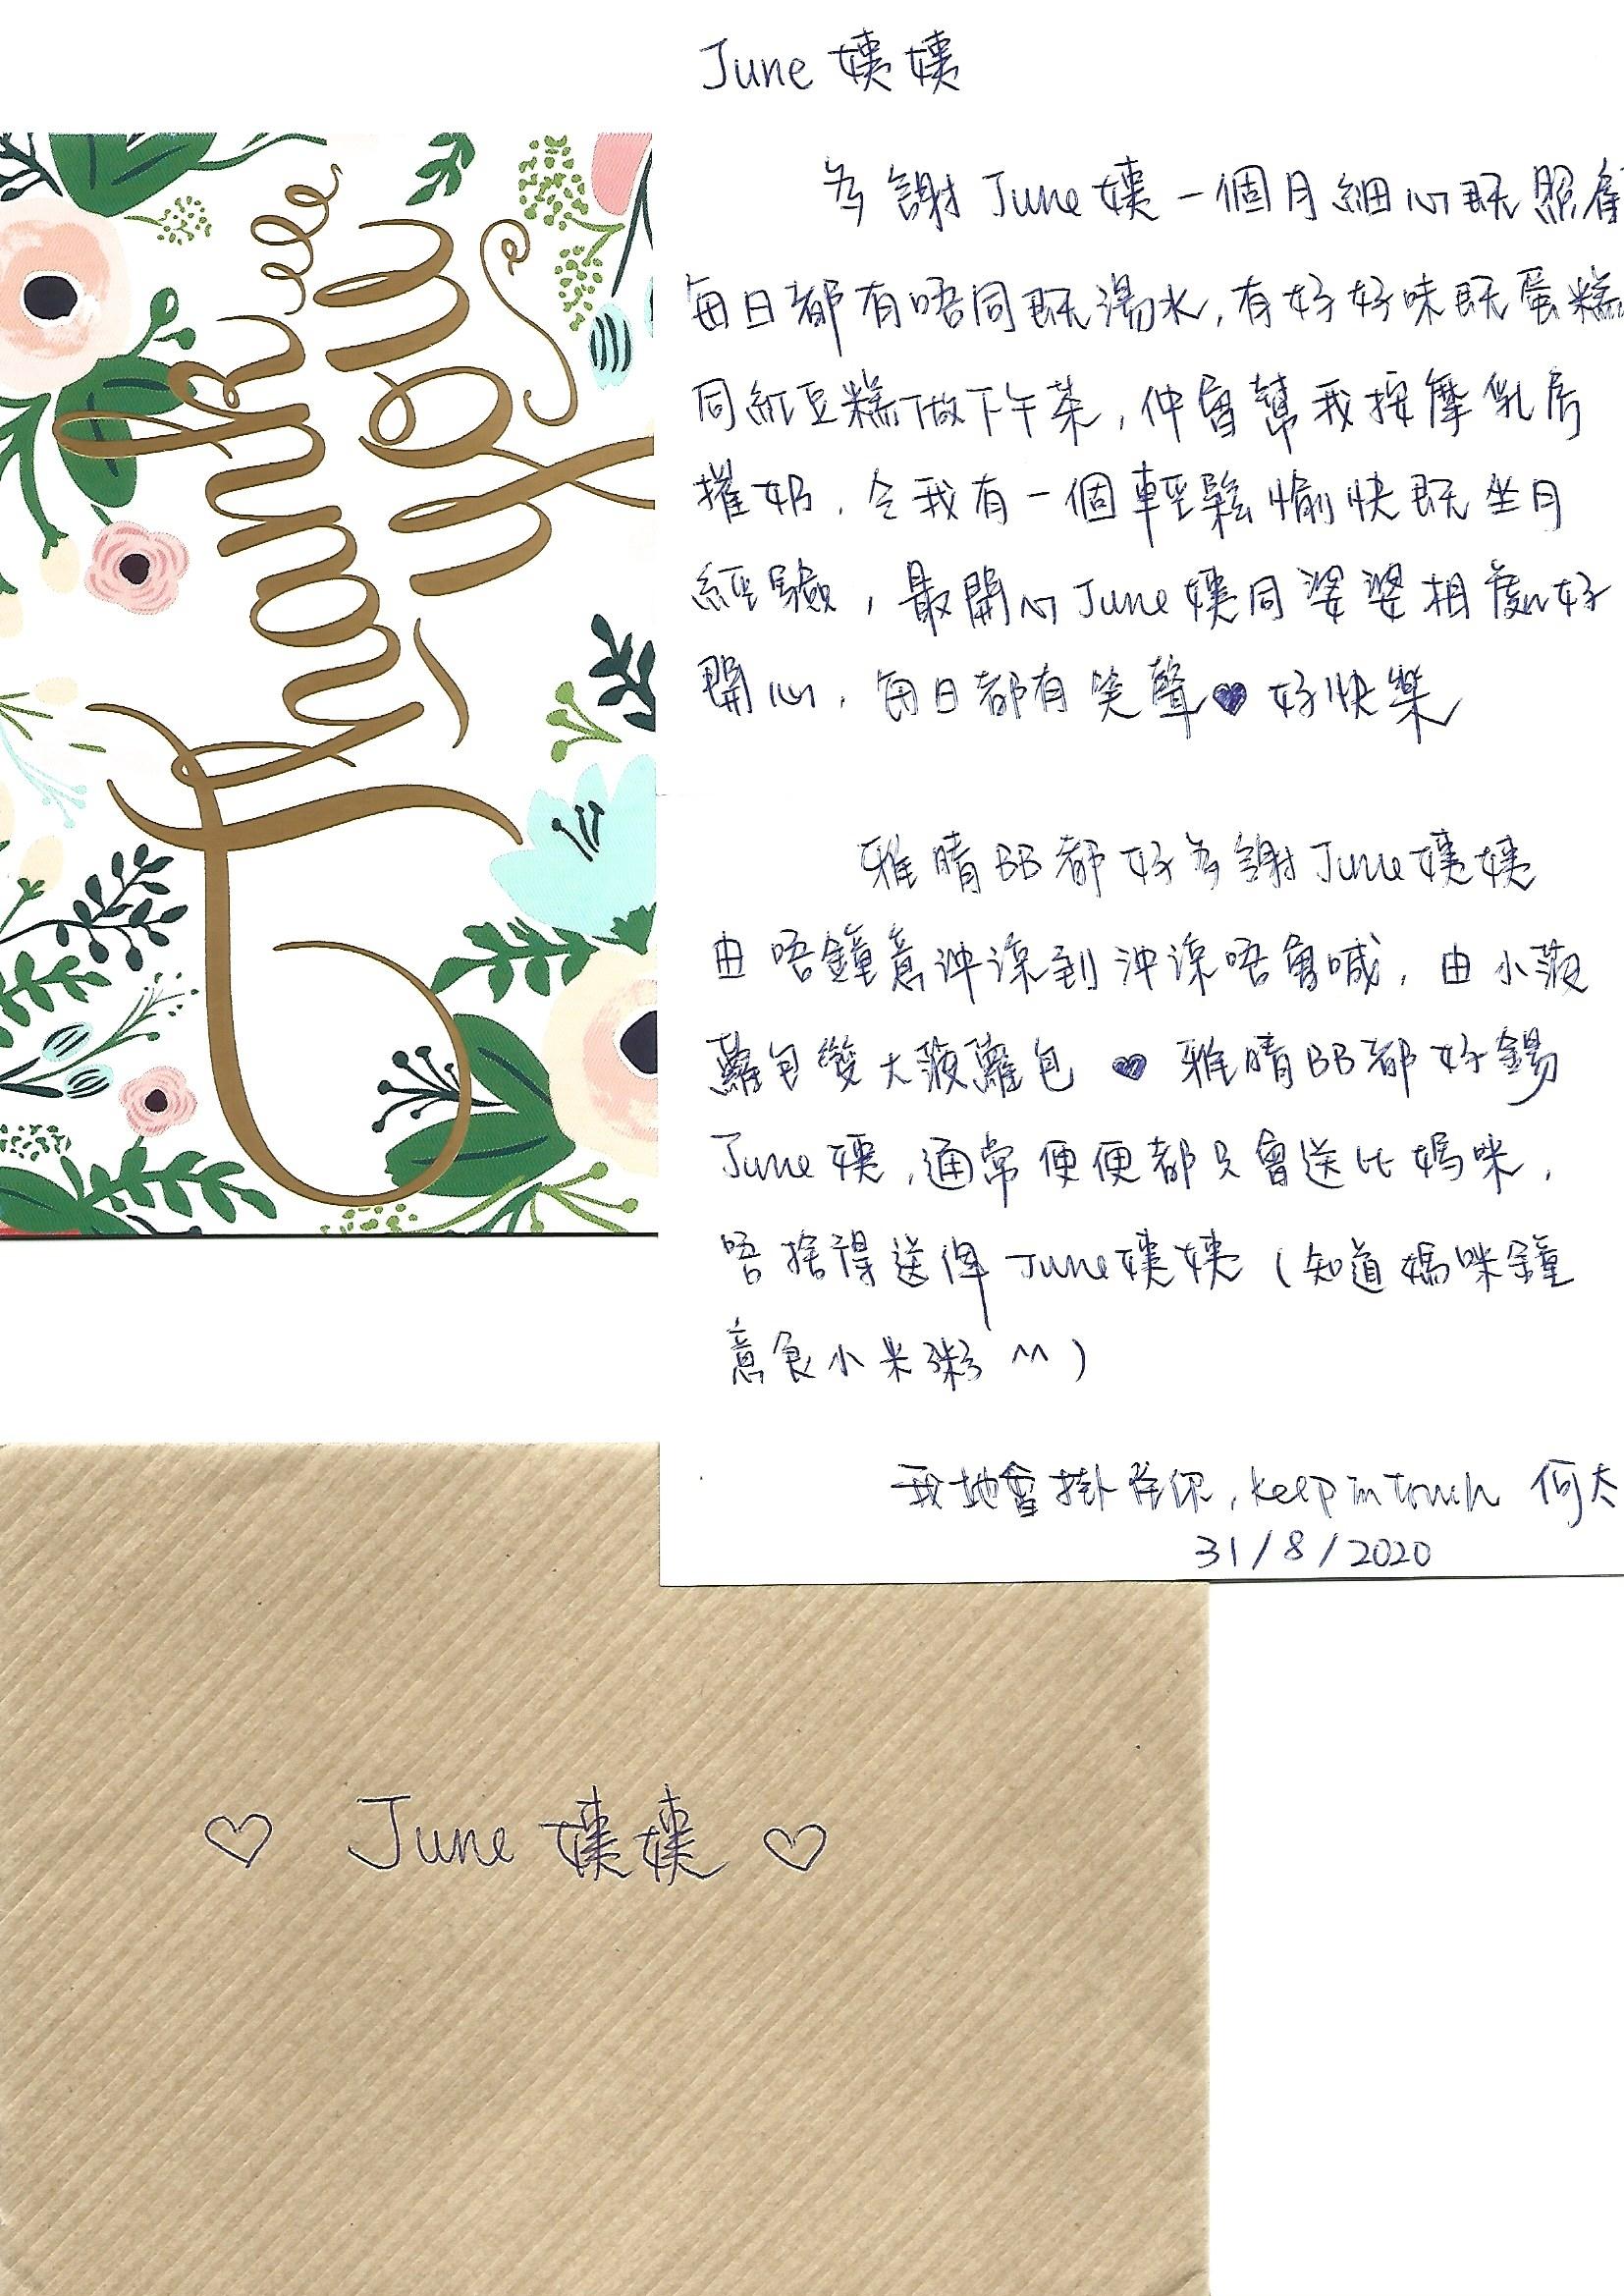 June 姨姨
多謝 June 姨一個月細心既照顧
每日都有唔同既湯水,有好好味既蛋糕
同紅豆糕做下午茶,仲會幫我按摩乳房
摧奶,令我有一個輕鬆愉快既坐月
經驗,最開心June 姨同婆婆相處好
開心,每日都有笑聲♥好快樂
雅晴BB都好多謝June姨姨
由唔鐘意沖涼到沖涼唔會喊,由小菠
蘿包變大菠蘿包 ♥ 雅晴BB都好錫
June姨,通常便便都只會送比媽咪,
唔捨得送俾June姨姨(知道媽咪鐘
意食小米粥 ^^)
我地會掛住你,keep in touch 何太
31/8/2020
Thank you
so much
♡ June 姨姨 ♡